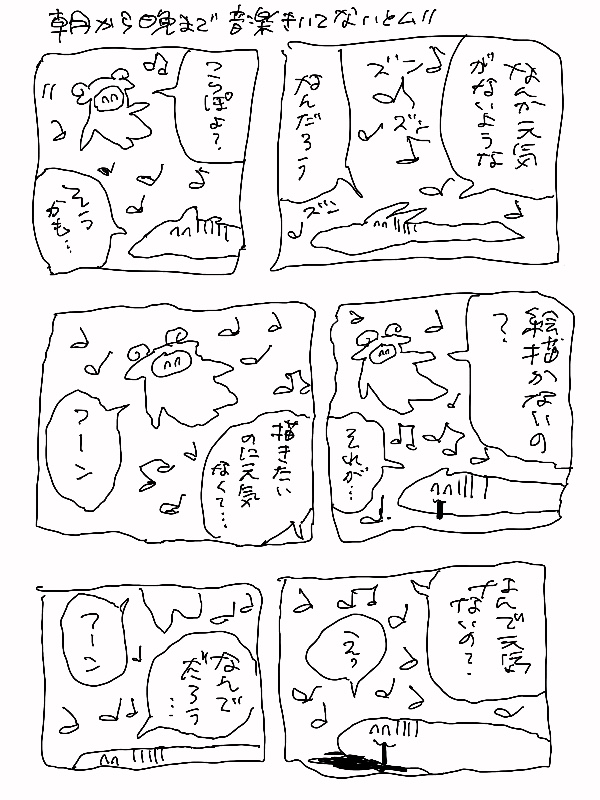 朝から晩まで音楽きいてないとム〃
なんか元気
がないような
ズン
ズン
なんだろう
ズン
つらぽよ？
そう
かも…
絵描かないの
？
それが…
描きたい
のに元気
なくて…
フーン
なんで元気
ないの？
えっ
なんで
だろう
…
フーン